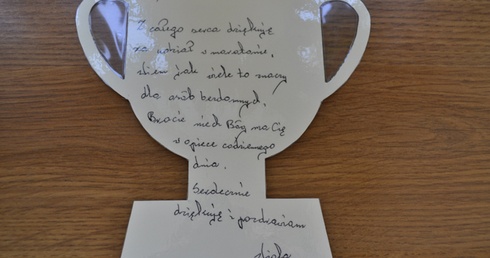 Z całego serca dziękuję
za udział w maratonie,
wiem jak wiele to znaczy
dla osób bezdomnych.
Bracie niech Bóg ma Cię
w opiece codziennego
dnia.
Serdecznie
dziękuję i pozdrawiam